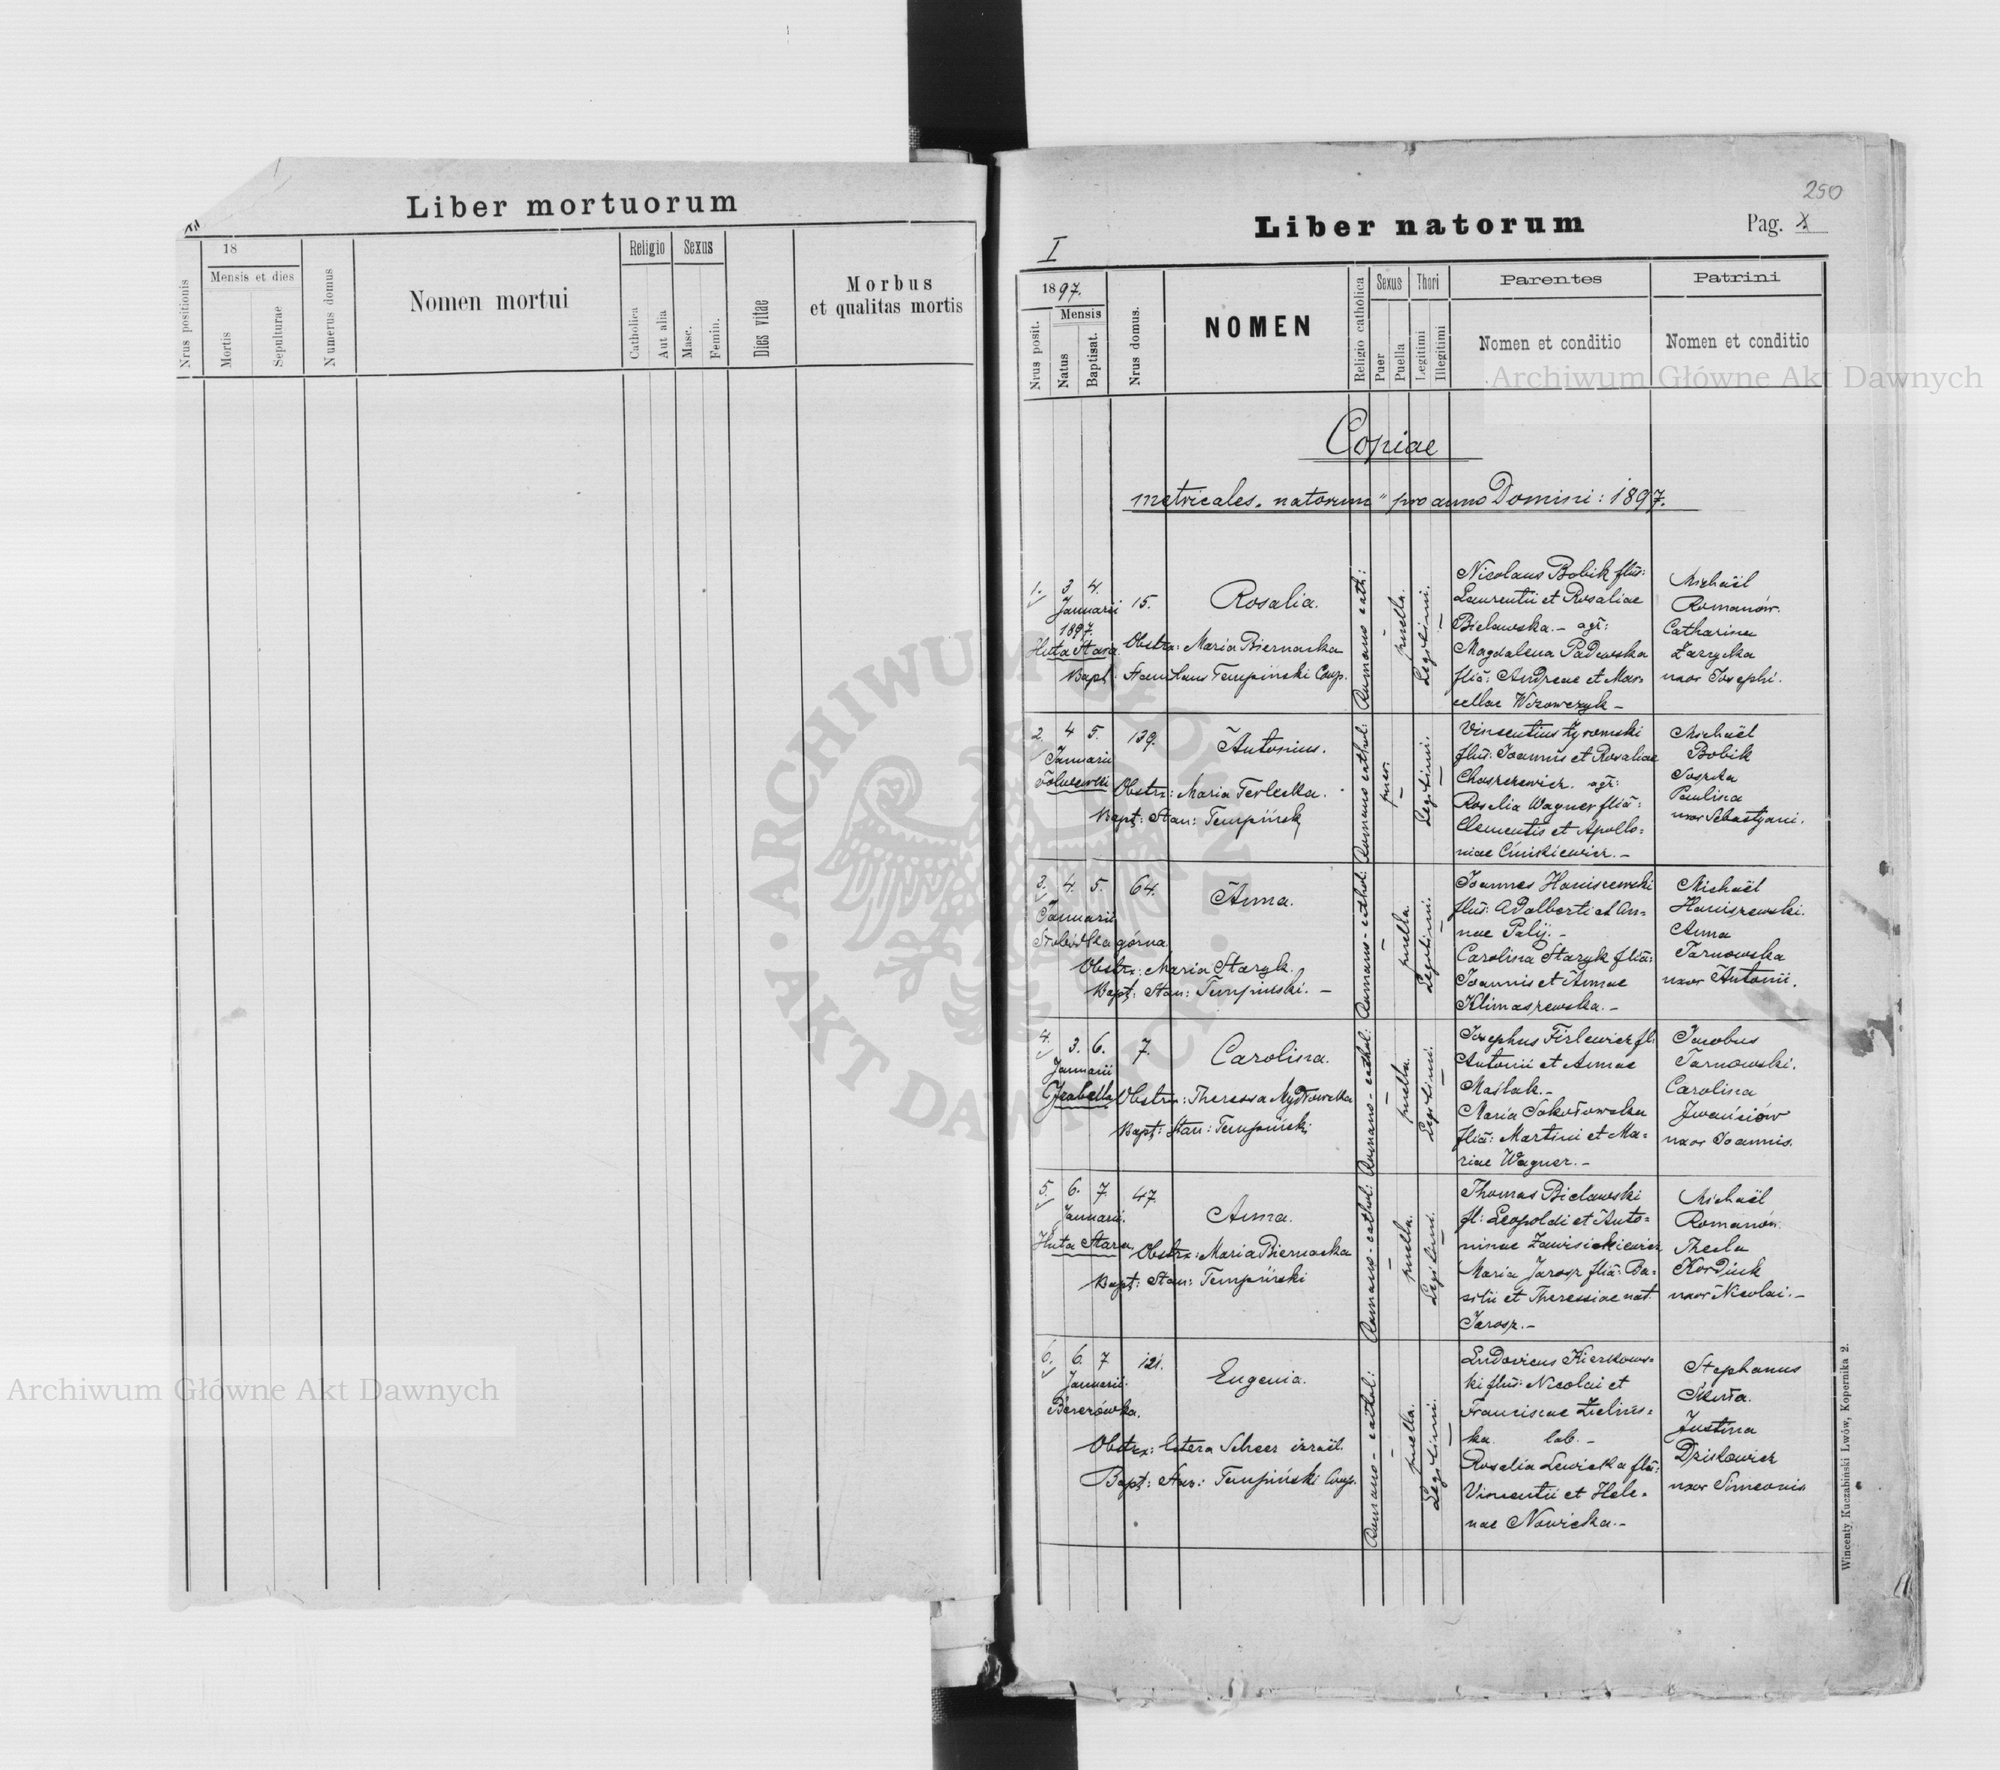 Liber mortuorum
Nrus positionis
18
Mensis et dies
Mortis
Sepulturae
Numerus domus
Nomen mortui
Religio
Catholica
Aut alia
Sexus
Masc.
Femin.
Dies vitae
Morbus
et qualitas mortis
250
Liber natorum
Pag. X
I
Nrus posit.
1897.
Mensis
Natus
Baptisat.
Nrus domus.
NOMEN
Religio catholica
Sexus
Puer
Puella
Thori
Legitimi
Illegitimi
Parentes
Nomen et conditio
Patrini
Nomen et conditio
Copiae
metricales „natorum" pro anno Domini: 1897.
1. 3 4.
Januarii
1897.
Huta Stara
15.
Rosalia.
Obstrx: Maria Biernacka
Bapt. Stanislaus Tempiński Coop.
Romano cath:
puella.
Legitimi.
Nicolaus Bobik fliu:
Laurentii et Rosaliae
Bielawska. – agr:
Magdalena Padewska
flia: Andreae et Mar=
cellae Wdowczyk –
Michaël
Romanów.
Catharina
Zarzycka
uxor Josephi.
2. 4 5.
Januarii
139.
Antonius.
Obstrx: Maria Terlecka.
Bapt: Stan: Tempiński
Romano cathol:
puer.
Legitimi.
Vincentius Żyromski
fliu: Joannis et Rosaliae
agr:
Rosalia Wagner flia:
Clementis et Apollo=
niae
Michaël
Bobik
Paulina
uxor Sebastyani.
3. 4. 5.
Januarii
Słobódka górna
64.
Anna.
Obstrx: Maria Staryk.
Bapt: Stan: Tempiński. –
Romano-cathol:
puella.
Legitimi.
Joannes Haniszewski
fliu: Adalberti et An=
nae Palij. –
Carolina Staryk flia:
Joannis et Annae
Klimaszewska. –
Michaël
Haniszewski.
Anna
Tarnowska
uxor Antonii.
4. 3. 6.
Januarii
7.
Carolina.
Obstrx: Theressa Mydłowska
Bapt: Stan: Tempiński
Romano-cathol:
puella.
Legitimi.
Josephus Firlewicz fl:
Antonii et Annae
Maślak. –
Maria Sokołowska
flia: Martini et Ma=
riae Wagner. –
Jacobus
Tarnowski.
Carolina
Iwańciów
uxor Joannis.
5. 6. 7.
Januarii.
Huta Stara
47.
Anna.
Obstrx: Maria Biernacka
Bapt: Stan: Tempiński
Romano-cathol:
puella.
Legitimi.
Thomas Bielawski
fl: Leopoldi et Anto=
ninae
Maria Jarosz flia: Ba=
silii et Theressiae nat.
Jarosz. –
Michaël
Romanów.
Thecla
Kordiuk
uxor Nicolai. –
6. 6. 7
Januarii.
121.
Eugenia.
Obstrx: Estera Scheer izraël.
Bapt: Stan: Tempiński Coop.
Romano-cathol:
puella.
Legitimi.
Ludovicus Kierkows=
ki fliu: Nicolai et
Franciscae Zielińs=
ka. lab. –
Rosalia Lewicka flia:
Vincentii et Hele=
nae Nowicka. –
Stephanus
Justina
uxor Simeonis
Wincenty Kuczabiński Lwów, Kopernika 2.
Archiwum Główne Akt Dawnych
Archiwum Główne Akt Dawnych
ARCHIWUM GŁÓWNE · AKT DAWNYCH ·